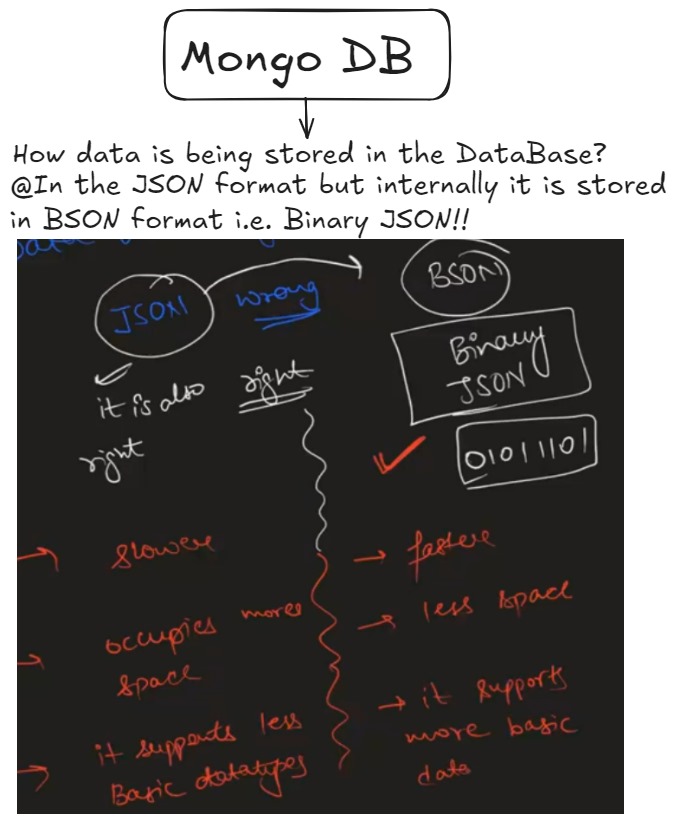 Mongo DB
How data is being stored in the DataBase?
@In the JSON format but internally it is stored
in BSON format i.e. Binary JSON!!
JSON
wrong
BSON
Binary
JSON
it is also right
right
01011101
slower
faster
occupies more
space
less space
it supports less
Basic datatypes
it supports
more basic
data